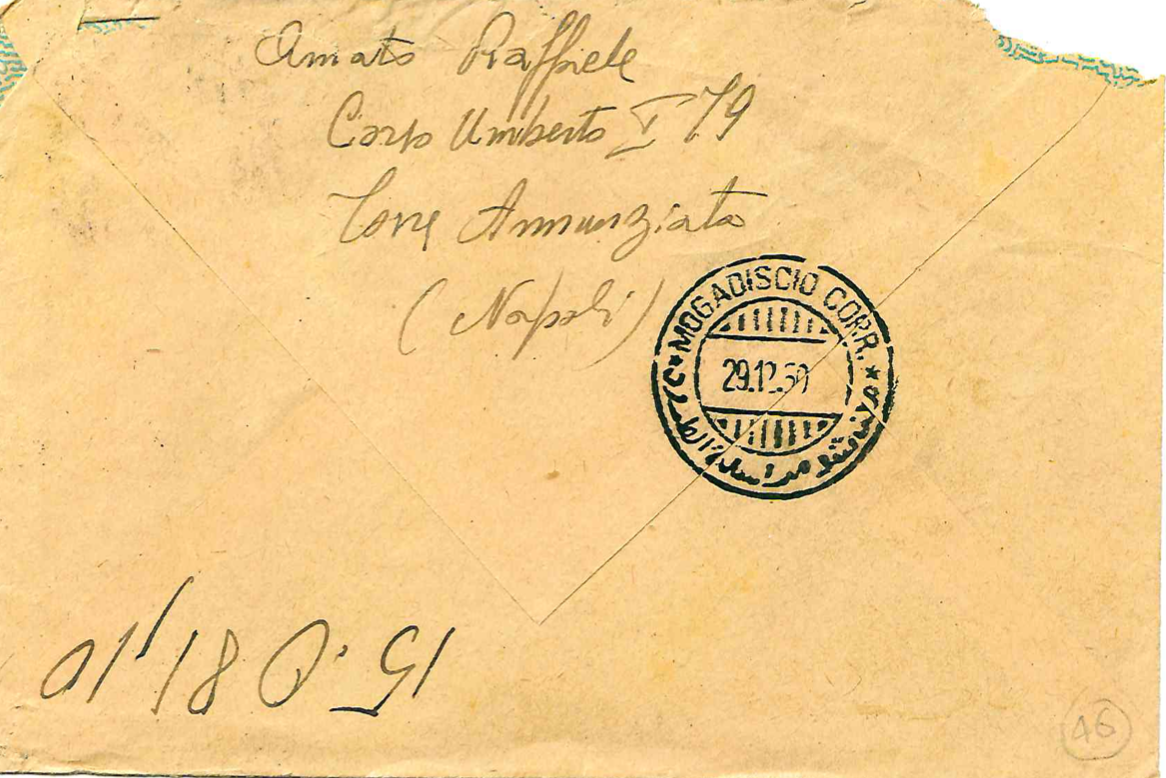 Amato Raffaele
Corso Umberto I 79
Torre Annunziata
(Napoli)
* MOGADISCIO CORR. *
29.12.50
46